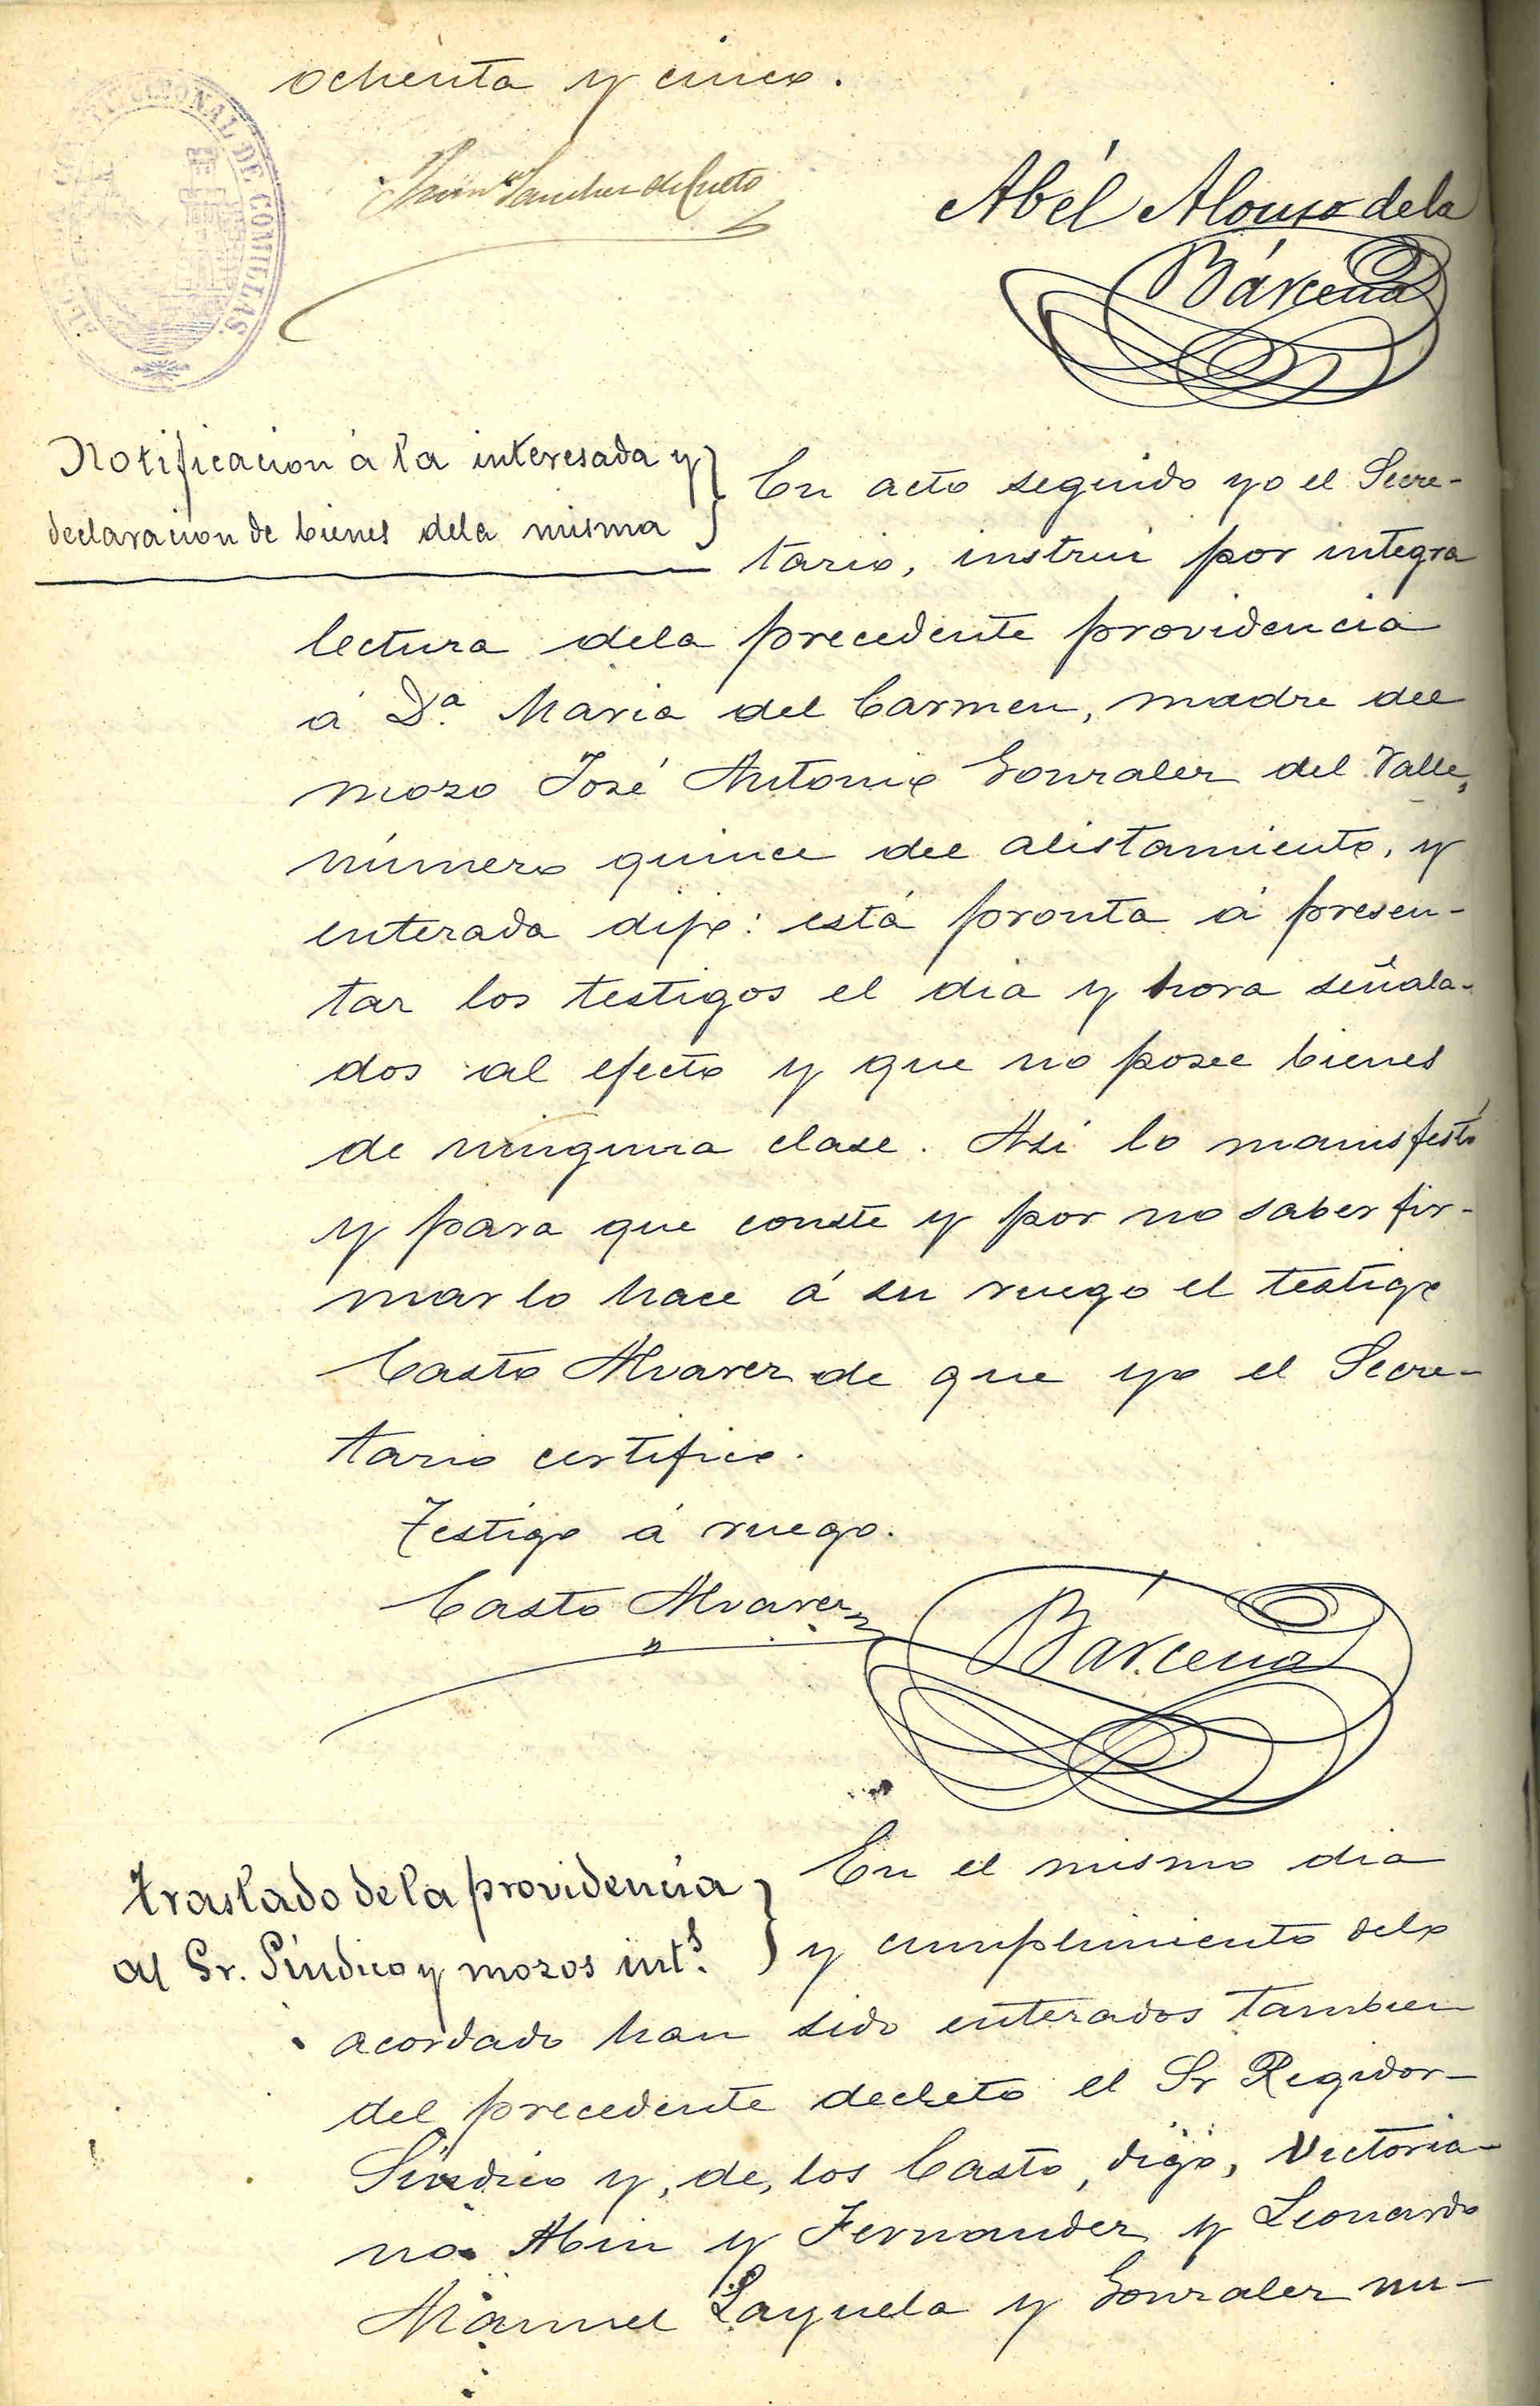 ochenta y cinco.
CONSTITUCIONAL DE COMILLAS.
Sanchez de Cueto
Abél Alonso dela
Bárcena
Notificacion á la interesada y
declaracion de bienes dela misma
En acto seguido yo el Secre-
tario, instrui por integra
lectura dela precedente providencia
á Dª. Maria del Carmen, madre del
mozo José Antonio Gonzalez del Valle,
número quince del alistamiento, y
enterada dijo: está pronta á presen-
tar los testigos el dia y hora señala-
dos al efecto y que no posee bienes
de ninguna clase. Asi lo manisfestó
y para que conste y por no saber fir-
mar lo hace á su ruego el testigo
Casto Alvarez de que yo el Secre-
tario certifico.
Testigo á ruego.
Casto Alvarez
Bárcena
Traslado de la providencia
al Sr. Síndico y mozos intˢ.
En el mismo dia
y cumplimiento delo
acordado han sido enterados tambien
del precedente decreto el Sr Regidor-
Síndico y, de, los Casto, digo, Victoria-
no Abin y Fernandez y Leonardo
Manuel Zayuela y Gonzalez nu-